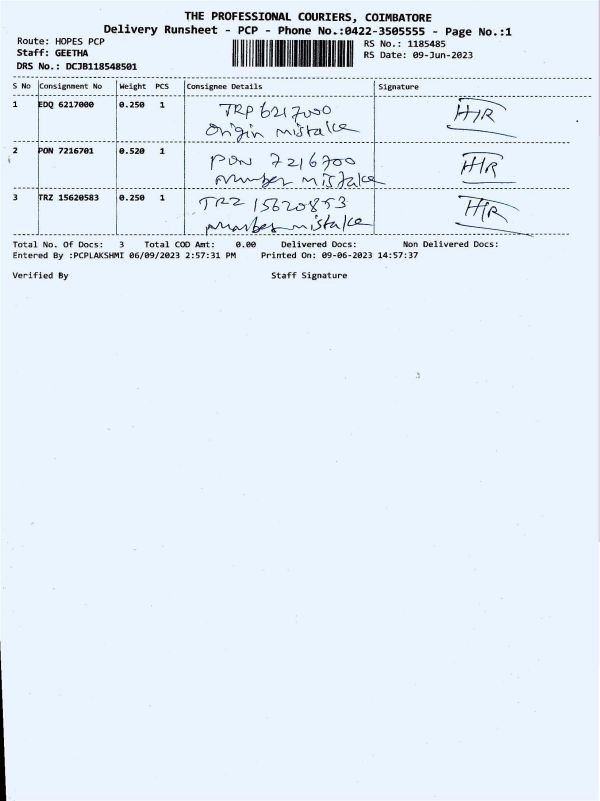 THE PROFESSIONAL COURIERS, COIMBATORE
Delivery Runsheet - PCP - Phone No.:0422-3505555 - Page No.:1
Route: HOPES PCP
Staff: GEETHA
DRS No.: DCJB118548501
RS No.: 1185485
RS Date: 09-Jun-2023
S No Consignment No Weight PCS Consignee Details Signature
1 EDQ 6217000 0.250 1 TRP 6217000
Origin mistake
2 PON 7216701 0.520 1 PON 7216700
number mistake
3 TRZ 15620583 0.250 1 TRZ 15620853
number mistake
Total No. Of Docs: 3 Total COD Amt: 0.00 Delivered Docs: Non Delivered Docs:
Entered By :PCPLAKSHMI 06/09/2023 2:57:31 PM Printed On: 09-06-2023 14:57:37
Verified By Staff Signature